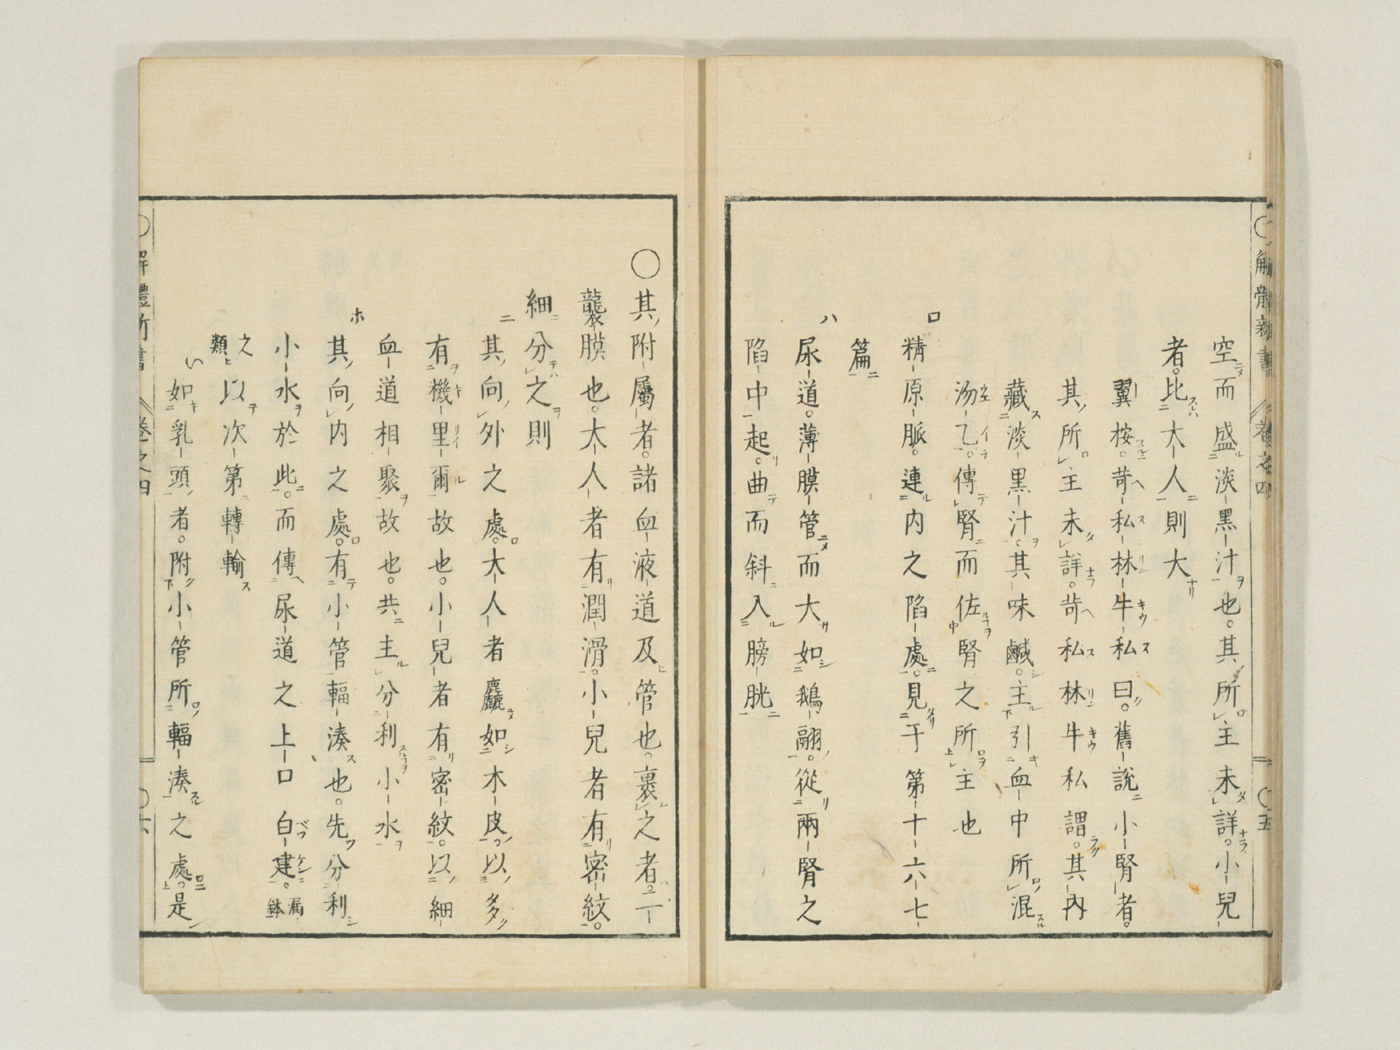 解體新書 卷之四 〇五
空而盛淡黒汁也。其所主未詳。小兒
者。比大人則大
翼桉。苛私林牛私曰。舊說小腎者。
其所主未詳。苛私林牛私謂。其內
藏淡黒汁。其味鹹。主引血中所混
汤乙。傳腎而佐腎之所主也
ロ
精原脈。連內之陷處。見于第十六七
篇
ハ
尿道。薄膜管而大如鵝翮。從兩腎之
陷中起。曲而斜入膀胱
〇其附屬者。諸血液道及管也。裹之者二
襲膜也。大人者有潤滑。小兒者有密紋。
細分之則
ニ
其向外之處。大人者麤如木皮。以多
有機里爾故也。小兒者有密紋。以細
血道相聚故也。共主分利小水
ホ
其向內之處。有小管輻湊也。先分利
小水於此。而傳尿道之上口白建。漏鉢
之類
以次第轉輸
い
如乳頭者。附小管所輻湊之處。是
解體新書 卷之四 〇六